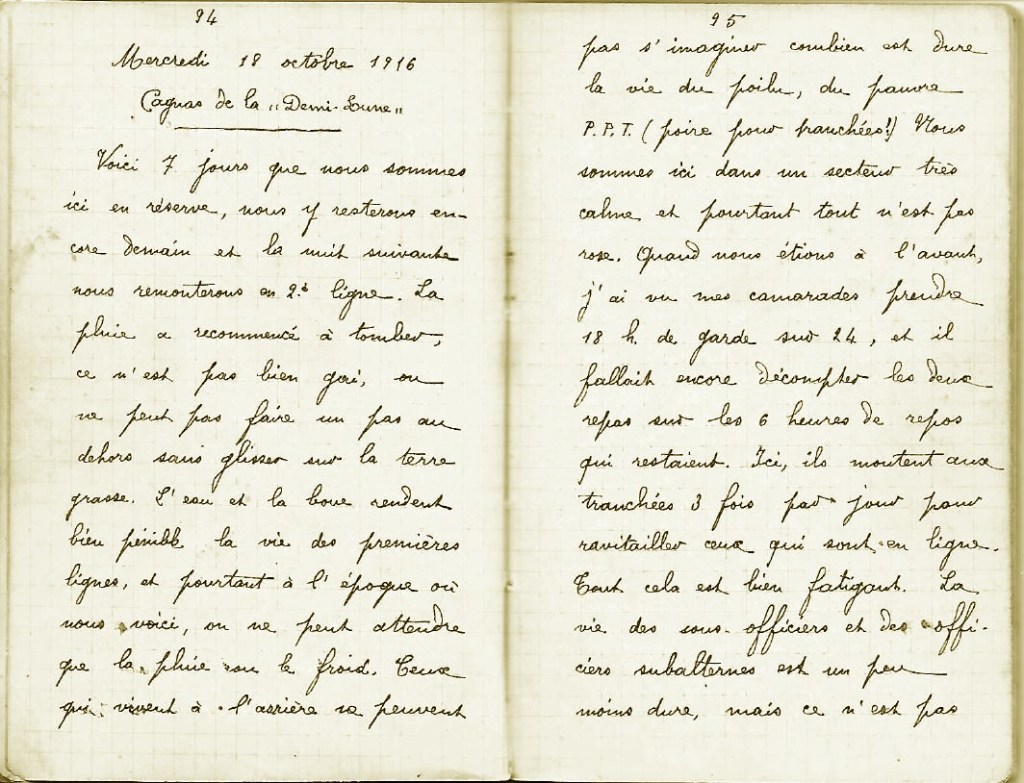 94
Mercredi 18 octobre 1916
Cagnas de la "Demi-Lune"
Voici 7 jours que nous sommes
ici en réserve, nous y resterons en-
core demain et la nuit suivante
nous remonterons en 2e ligne. La
pluie a recommencé à tomber,
ce n'est pas bien gai, on
ne peut pas faire un pas au
dehors sans glisser sur la terre
grasse. L'eau et la boue rendent
bien pénible la vie des premières
lignes, et pourtant à l'époque où
nous voici, on ne peut attendre
que la pluie ou le froid. Ceux
qui vivent à l'arrière ne peuvent
95
pas s'imaginer combien est dure
la vie du poilu, du pauvre
P.P.T. (poire pour tranchées!) Nous
sommes ici dans un secteur très
calme et pourtant tout n'est pas
rose. Quand nous étions à l'avant,
j'ai vu mes camarades prendre
18 h. de garde sur 24, et il
fallait encore décompter les deux
repas sur les 6 heures de repos
qui restaient. Ici, ils montent aux
tranchées 3 fois par jour pour
ravitailler ceux qui sont en ligne.
Tout cela est bien fatigant. La
vie des sous-officiers et des offi-
ciers subalternes est un peu
moins dure, mais ce n'est pas